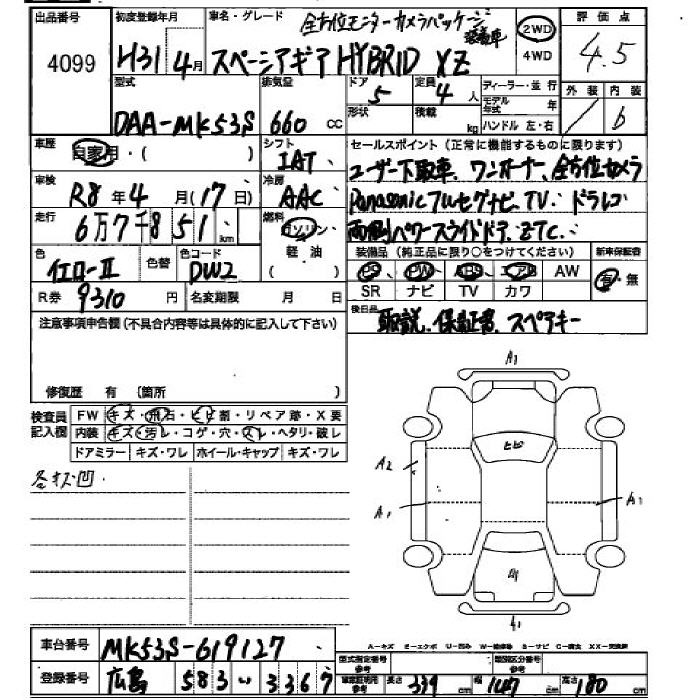 出品番号 初度登録年月 車名・グレード 全方位モニターカメラパッケージ装着車 2WD 4WD 評価点
4099 H31 4月 スペーシアギア HYBRID XZ 4.5
型式 排気量 ドア 定員 ディーラー・並行 外装 内装
DAA-MK53S 660 cc 5 4人 モデル年式 年
形状 積載 kg ハンドル 左・右 b
車歴 自家用・( ) シフト IAT セールスポイント(正常に機能するものに限ります)
ユーザー下取車、ワンオーナー、全方位カメラ
車検 R8年4月(17日) 冷房 AAC
Panasonicフルセグナビ、TV・ドラレコ
走行 6万7千851km 燃料 ガソリン・軽油
両側パワースライドドア、ETC、
色 イエロー-Ⅱ 色替 色コード DW2
装備品(純正品に限り○をつけてください) 新車保証書
PS PW ABS エアB AW 有・無
R券 9310円 名変期限 月 日 SR ナビ TV カワ
注意事項申告欄(不具合内容等は具体的に記入して下さい) 後日品 取説、保証書、スペアキー
修復歴 有(箇所 )
検査員記入欄 FW キズ・飛石・ヒビ割・リペア跡・X要
内装 キズ・汚レ・コゲ・穴・スレ・ヘタリ・破レ
ドアミラー キズ・ワレ ホイール・キャップ キズ・ワレ
各キズ凹
A1
ヒビ
A2
A1 A1
A1
車台番号 MK53S-619127
A-キズ E-エクボ U-凹み W-補修跡 S-サビ C-腐食 XX-交換済
登録番号 広島 583 3367
型式指定番号 参考 類別区分番号 参考
車庫証明用 参考 長さ 339cm 幅 147cm 高さ 180cm